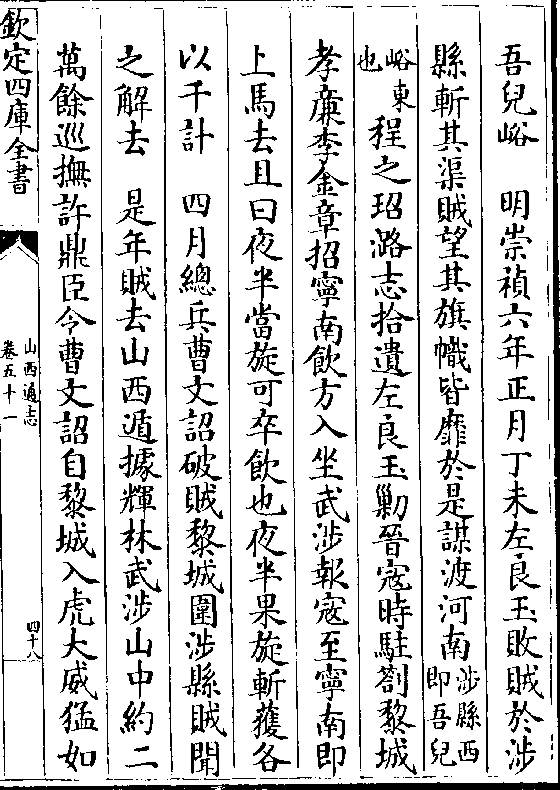 吾兒峪　明崇禎六年正月丁未左良玉敗賊於涉
縣斬其渠賊望其旗幟皆靡於是謀渡河南涉縣西即吾兒
峪東也程之玿潞志拾遺左良玉勦晉寇時駐劄黎城
孝廉李金章招寧南飲方入坐武涉報寇至寧南即
上馬去且曰夜半當旋可卒飲也夜半果旋斬獲各
以千計　四月總兵曹文詔破賊黎城圍涉縣賊聞
之解去　是年賊去山西遁據輝林武涉山中約二
萬餘巡撫許鼎臣令曹文詔自黎城入虎大威猛如
欽定四庫全書
山西通志
卷五十一
四十八